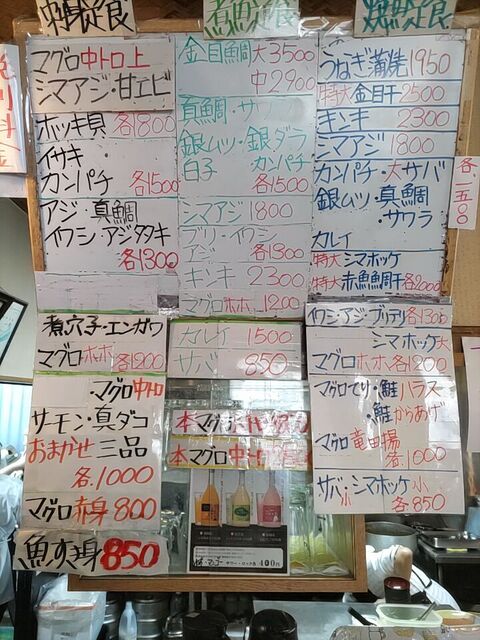 刺身定食
マグロ中トロ上
シマアジ・甘エビ
ホッキ貝 各1800
イサキ
カンパチ 各1500
アジ・真鯛
イワシ・アジタタキ
各1300
煮穴子・エンガワ
マグロホホ 各1200
マグロ中トロ
サーモン・真ダコ
おまかせ三品
各1000
マグロ赤身 800
魚すき身 850
煮魚定食
金目鯛 大3500
中2900
真鯛・サワラ
銀ムツ・銀ダラ
白子 カンパチ
各1500
シマアジ 1800
ブリ・イワシ
アジ 各1300
キンキ 2300
マグロホホ 1200
カレイ 1500
サバ 850
本マグロ
本マグロ中
400円
焼魚定食
うなぎ蒲焼 1950
特大金目干 2500
キンキ 2300
シマアジ 1800
カンパチ・大サバ
銀ムツ・真鯛
・サワラ
各一五〇〇
カレイ
特大シマホッケ
特大赤魚鯛干 各2000
イワシ・アジ・ブリテリ 各1300
シマホッケ大
マグロホホ 各1200
マグロてり・鮭ハラス
鮭からあげ
マグロ竜田揚
各1000
サバ小シマホッケ小
各850